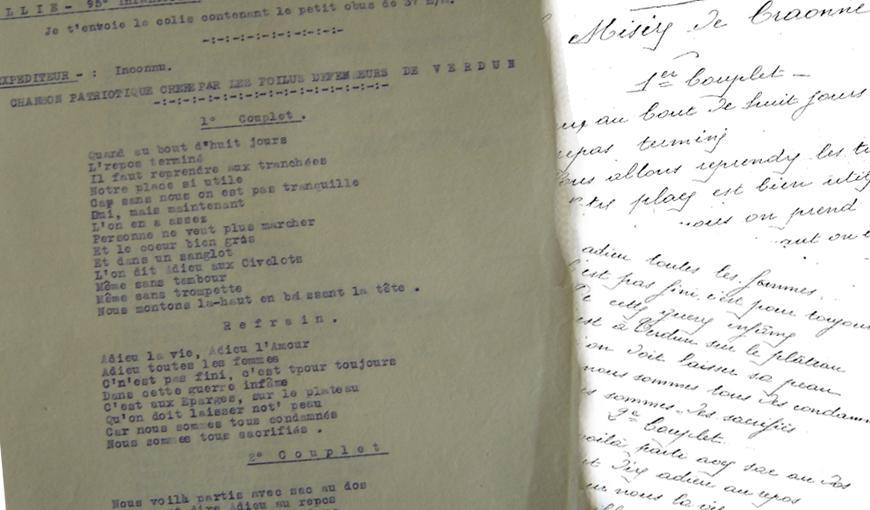 LLIE - 95°
Je t'envoie le colis contenant le petit obus de 37 m/m.
-:-:-:-:-:-:-:-:-:-
EXPEDITEUR - : Inconnu.
CHANSON PATRIOTIQUE CREEE PAR LES POILUS DEFENSEURS DE VERDUN
-:-:-:-:-:-:-:-:-:-:-:-:-:-
1° Couplet.
Quand au bout d'huit jours
L'repos terminé
Il faut reprendre aux tranchées
Notre place si utile
Car sans nous on est pas tranquille
Oui, mais maintenant
L'on en a assez
Personne ne veut plus marcher
Et le coeur bien gros
Et dans un sanglot
L'on dit Adieu aux Civelots
Même sans tambour
Même sans trompette
Nous montons la-haut en baissant la tête .
Refrain.
Adieu la vie, Adieu l'Amour
Adieu toutes les femmes
C'n'est pas fini, c'est tpour toujours
Dans cette guerre infâme
C'est aux Eparges, sur le plateau
Qu'on doit laisser not' peau
Car nous sommes tous condamnés
Nous sommes tous sacrifiés .
2° Couplet
Nous voilà partis avec sac au dos
dire Adieu au repos
Misery de Craonne
1er Couplet -
au bout de huit jours
repas terming
allons reprendy les
play est bien
nous on prend
adieu toutes les femmes
est pas fini, c'est pour toujours
De cette guery infâmy
est à Verdun sur le plateau
on doit laisser sa peau
nous sommes tous des condam
sommes des sacrifiés
2e Couplet.
voilà parti avy sac au dos
diry adieu au repos
nous la vie